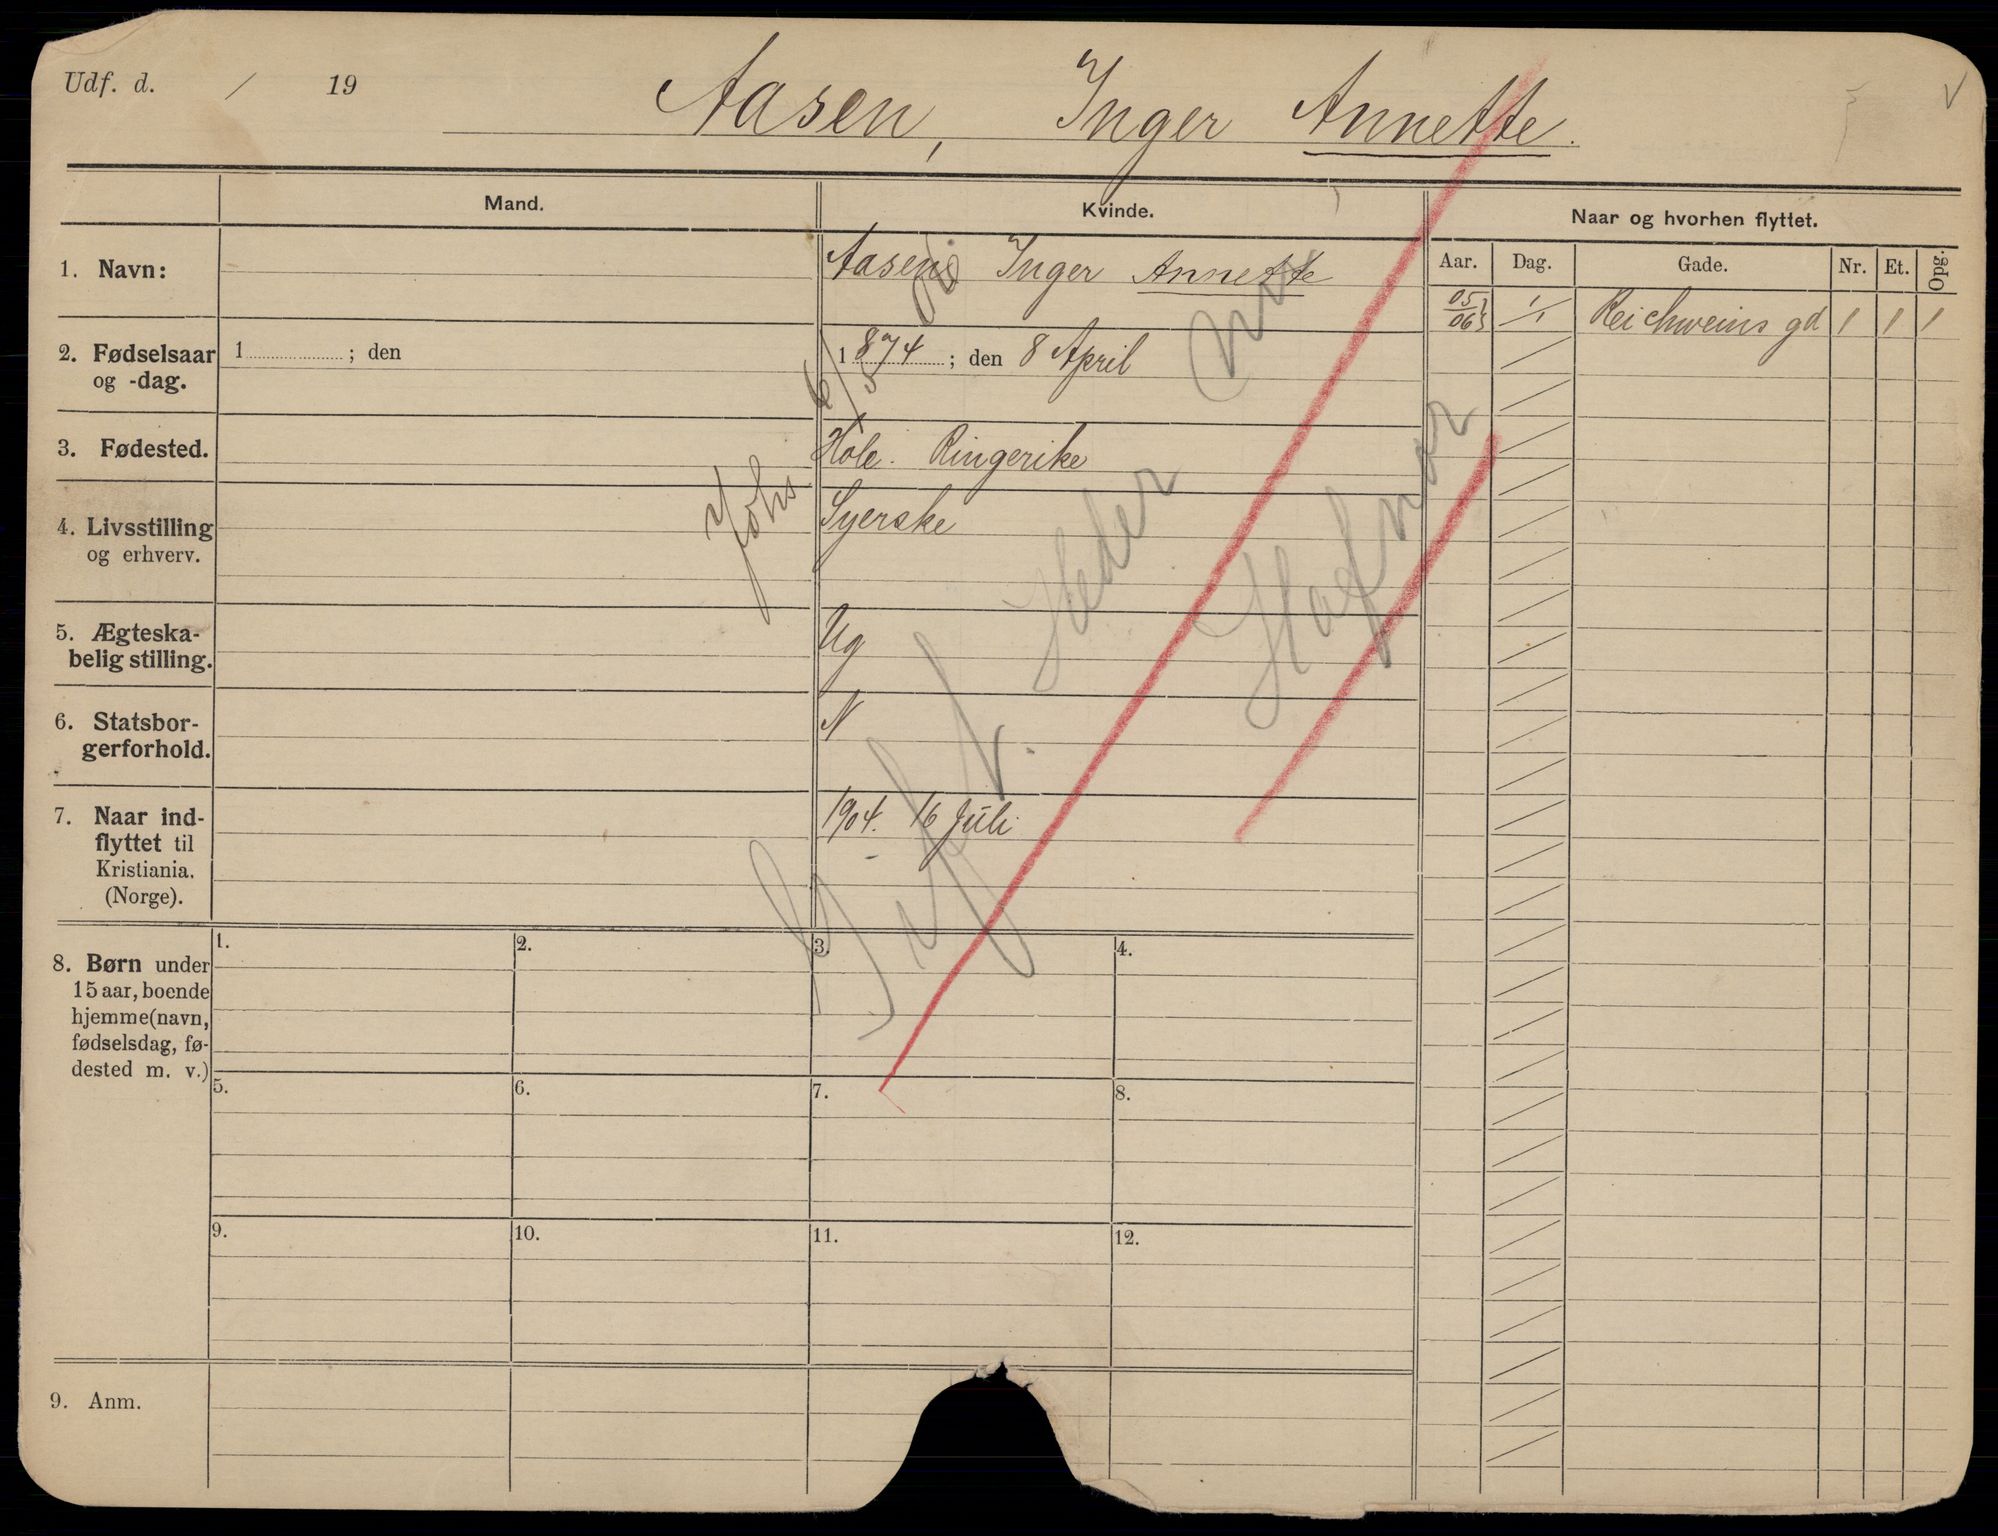 Udf. d. / 19
Aasen, Inger Annette.
Mand.
Kvinde.
Naar og hvorhen flyttet.
Aar. Dag. Gade. Nr. Et. Opg.
05/06 1/1 Reichweins gd 1 1 1
1. Navn:
Aasen Inger Annette
2. Fødselsaar
og -dag.
1 ; den
1874 ; den 8 April
3. Fødested.
Hole. Ringerike
4. Livsstilling
og erhverv.
Syerske
5. Ægteska-
belig stilling.
Ug
6. Statsbor-
gerforhold.
N
7. Naar ind-
flyttet til
Kristiania.
(Norge).
1904. 16 Juli
Gift
Hafnor
6/5 06
8. Børn under
15 aar, boende
hjemme (navn,
fødselsdag, fø-
dested m. v.)
1. 2. 3. 4.
5. 6. 7. 8.
9. 10. 11. 12.
9. Anm.